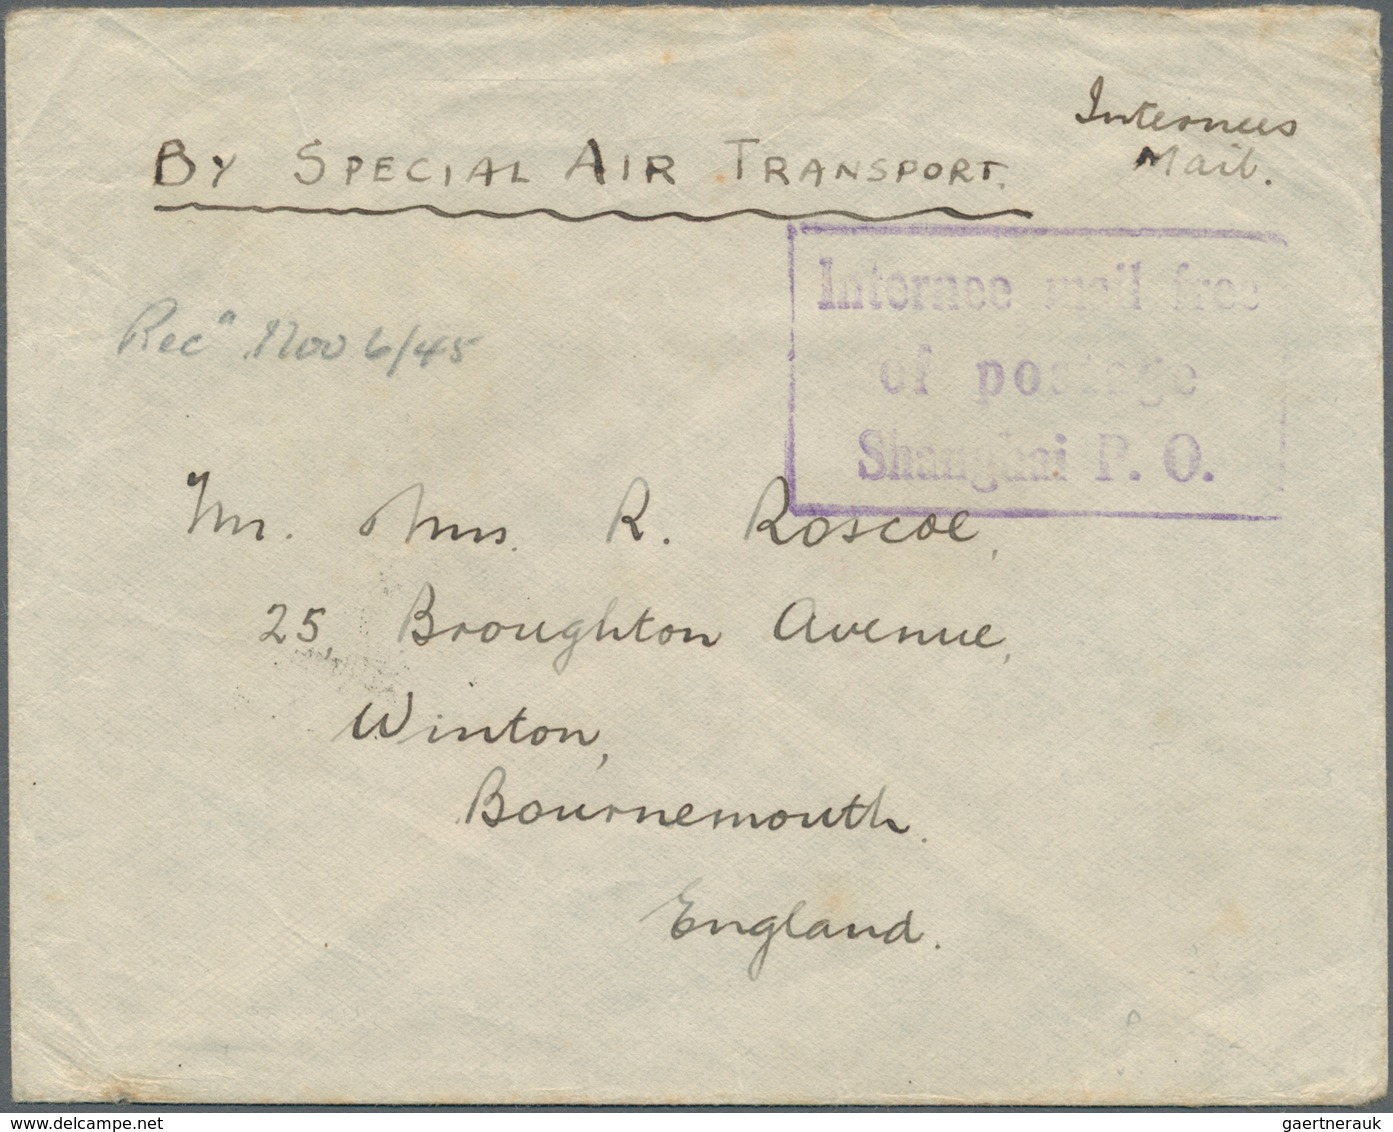 Internees
Mail.
BY SPECIAL AIR TRANSPORT.
Internee mail free
of postage
Shanghai P. O.
Recd Nov 6/45
Mr. & Mrs. R. Roscoe,
25 Broughton Avenue,
Winton,
Bournemouth.
England.
© www.delcampe.net
gaertnerauk